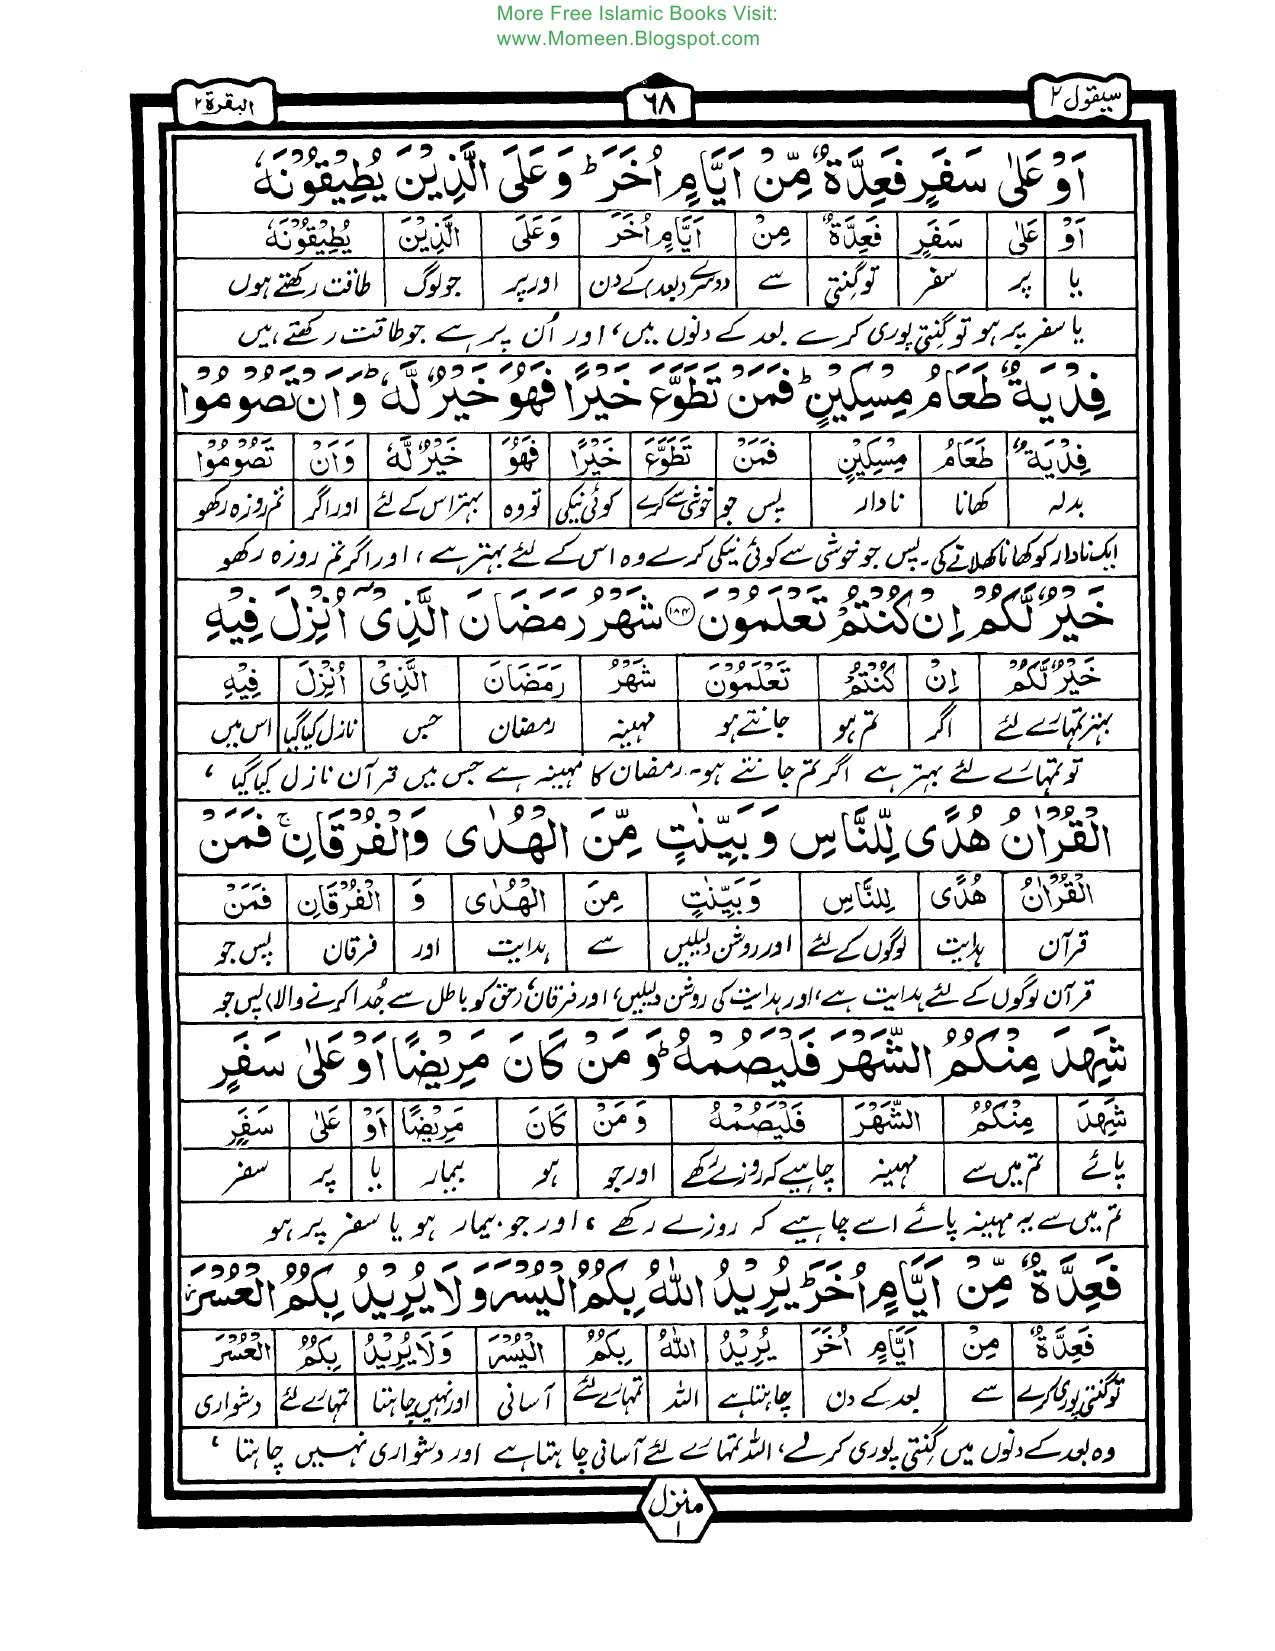 More Free Islamic Books Visit:
www.Momeen.Blogspot.com
سیقول ۲ ٦٨ البقرة ۲
اَوْ عَلٰى سَفَرٍ فَعِدَّةٌ مِّنْ اَيَّامٍ اُخَرَ ؕ وَعَلَى الَّذِيْنَ يُطِيْقُوْنَهٗ
اَوْ عَلٰى سَفَرٍ فَعِدَّةٌ مِنْ اَيَّامٍ اُخَرَ وَعَلَى الَّذِيْنَ يُطِيْقُوْنَهٗ
یا پر سفر تو گنتی سے دوسرے (بعد) کے دن اور پر جو لوگ طاقت رکھتے ہوں
یا سفر پر ہو تو گنتی پوری کرے بعد کے دنوں میں، اور اُن پر ہے جو طاقت رکھتے ہیں
فِدْيَةٌ طَعَامُ مِسْكِيْنٍ ؕ فَمَنْ تَطَوَّعَ خَيْرًا فَهُوَ خَيْرٌ لَّهٗ ؕ وَاَنْ تَصُوْمُوْا
فِدْيَةٌ طَعَامُ مِسْكِيْنٍ فَمَنْ تَطَوَّعَ خَيْرًا فَهُوَ خَيْرٌ لَّهٗ وَاَنْ تَصُوْمُوْا
بدلہ کھانا نادار پس جو خوشی سے کرے کوئی نیکی تو وہ بہتر اس کے لئے اور اگر تم روزہ رکھو
ایک نادار کو کھانا کھلانے کی۔ پس جو خوشی سے کوئی نیکی کرے وہ اس کے لئے بہتر ہے، اور اگر تم روزہ رکھو
خَيْرٌ لَّكُمْ اِنْ كُنْتُمْ تَعْلَمُوْنَ ۱۸۴ شَهْرُ رَمَضَانَ الَّذِىْٓ اُنْزِلَ فِيْهِ
خَيْرٌ لَّكُمْ اِنْ كُنْتُمْ تَعْلَمُوْنَ شَهْرُ رَمَضَانَ الَّذِىْ اُنْزِلَ فِيْهِ
بہتر تمہارے لئے اگر تم ہو جانتے ہو مہینہ رمضان جس نازل کیا گیا اس میں
تو تمہارے لئے بہتر ہے اگر تم جانتے ہو۔ رمضان کا مہینہ ہے جس میں قرآن نازل کیا گیا،
الْقُرْاٰنُ هُدًى لِّلنَّاسِ وَبَيِّنٰتٍ مِّنَ الْهُدٰى وَالْفُرْقَانِ ۚ فَمَنْ
الْقُرْاٰنُ هُدًى لِلنَّاسِ وَبَيِّنٰتٍ مِنَ الْهُدٰى وَ الْفُرْقَانِ فَمَنْ
قرآن ہدایت لوگوں کے لئے اور روشن دلیلیں سے ہدایت اور فرقان پس جو
قرآن لوگوں کے لئے ہدایت ہے، اور ہدایت کی روشن دلیلیں، اور فرقان (حق کو باطل سے جُدا کرنے والا) پس جو
شَهِدَ مِنْكُمُ الشَّهْرَ فَلْيَصُمْهُ ؕ وَمَنْ كَانَ مَرِيْضًا اَوْ عَلٰى سَفَرٍ
شَهِدَ مِنْكُمُ الشَّهْرَ فَلْيَصُمْهُ وَمَنْ كَانَ مَرِيْضًا اَوْ عَلٰى سَفَرٍ
پائے تم میں سے مہینہ چاہیے کہ روزے رکھے اور جو ہو بیمار یا پر سفر
تم میں سے یہ مہینہ پائے اسے چاہیے کہ روزے رکھے، اور جو بیمار ہو یا سفر پر ہو
فَعِدَّةٌ مِّنْ اَيَّامٍ اُخَرَ ؕ يُرِيْدُ اللّٰهُ بِكُمُ الْيُسْرَ وَلَا يُرِيْدُ بِكُمُ الْعُسْرَ
فَعِدَّةٌ مِنْ اَيَّامٍ اُخَرَ يُرِيْدُ اللّٰهُ بِكُمُ الْيُسْرَ وَلَا يُرِيْدُ بِكُمُ الْعُسْرَ
تو گنتی پوری کرے سے بعد کے دن چاہتا ہے اللہ تمہارے لئے آسانی اور نہیں چاہتا تمہارے لئے دشواری
وہ بعد کے دنوں میں گنتی پوری کرلے، اللہ تمہارے لئے آسانی چاہتا ہے اور دشواری نہیں چاہتا،
منزل ۱